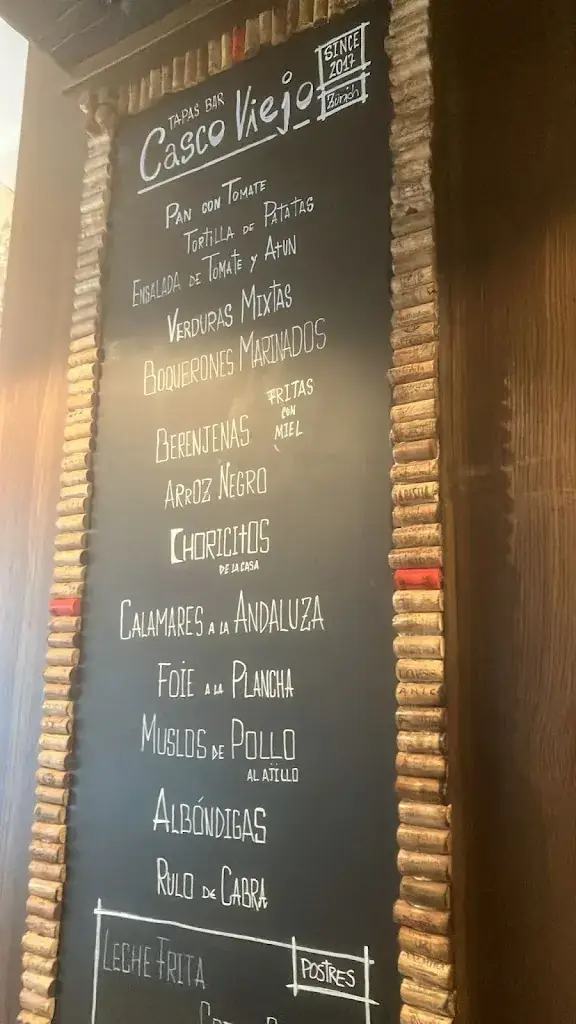 TAPAS BAR
Casco Viejo
SINCE
2017
Zürich
PAN CON TOMATE
TORTILLA DE PATATAS
ENSALADA DE TOMATE Y ATUN
VERDURAS MIXTAS
BOQUERONES MARINADOS
BERENJENAS FRITAS
CON
MIEL
ARROZ NEGRO
CHORICITOS
DE LA CASA
CALAMARES A LA ANDALUZA
FOIE A LA PLANCHA
MUSLOS DE POLLO
AL AJILLO
ALBÓNDIGAS
RULO DE CABRA
POSTRES
LECHE FRITA